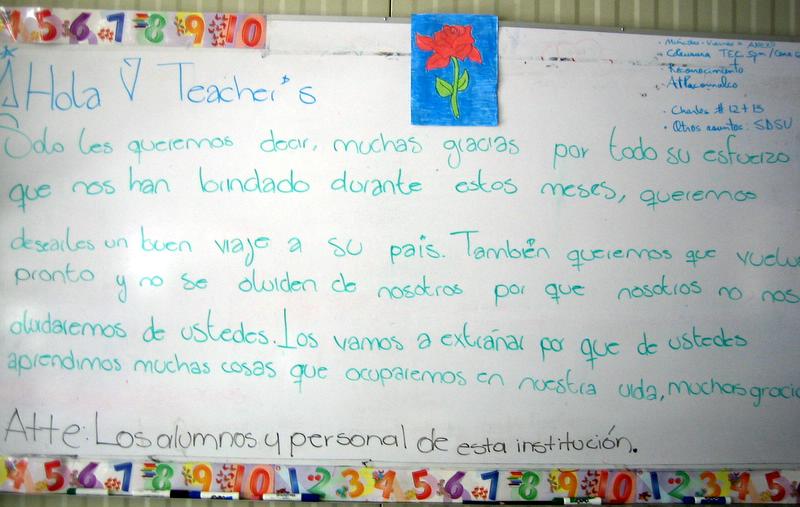 4 5 6 7 8 9 10
¡Hola! Teacher's
• Miércoles - Viernes =
• TEC 5pm /
• Reconocimiento
• Charlas # 12 + 13
• Otros asuntos: SDSU
Solo les queremos decir, muchas gracias por todo su esfuerzo
que nos han brindado durante estos meses, queremos
desearles un buen viaje a su pais. También queremos que vuelva
pronto y no se olviden de nosotros por que nosotros no nos
olvidaremos de ustedes. Los vamos a extrañar por que de ustedes
aprendimos muchas cosas que ocuparemos en nuestra vida, muchas gracia
Atte: Los alumnos y personal de esta institución.
4 5 6 7 8 9 10 1 2 3 4 5 6 7 8 9 10 1 2 3 4 5